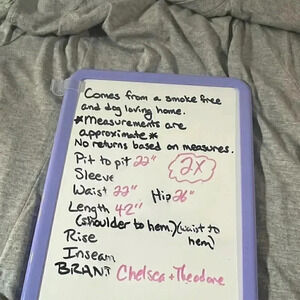 Comes from a smoke free
and dog loving home.
*Measurements are
approximate*
No returns based on measures.
Pit to pit 22" 2X
Sleeve
Waist 22" Hip 26"
Length 42"
(shoulder to hem)(waist to
hem)
Rise
Inseam
BRAND Chelsea + Theodore